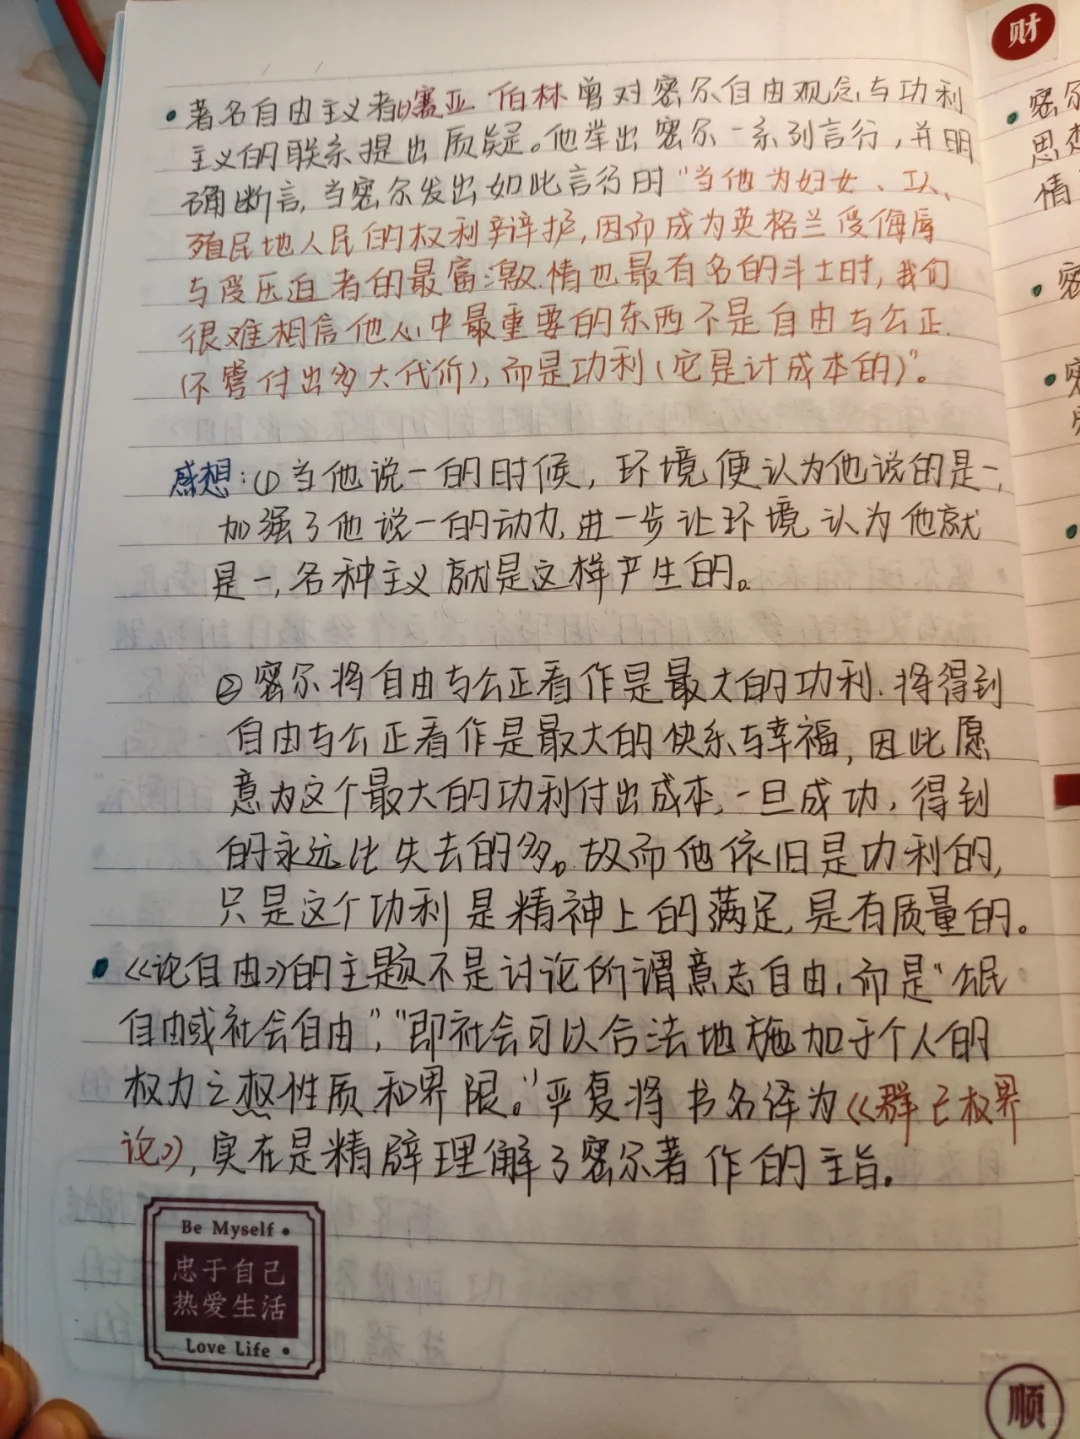 著名自由主义者以赛亚 伯林曾对密尔自由观念与功利
主义的联系提出质疑。他举出密尔一系列言行，并明
确断言，当密尔发出如此言行时"当他为妇女、工人、
殖民地人民的权利辩护，因而成为英格兰受侮辱
与受压迫者的最富激情也最有名的斗士时，我们
很难相信他心中最重要的东西不是自由与公正
(不管付出多大代价)，而是功利(它是计成本的)"。
感想:①当他说一的时候，环境便认为他说的是一，
加强了他说一的动力，进一步让环境认为他就
是一，各种主义就是这样产生的。
②密尔将自由与公正看作是最大的功利，将得到
自由与公正看作是最大的快乐与幸福，因此愿
意为这个最大的功利付出成本，一旦成功，得到
的永远比失去的多。故而他依旧是功利的，
只是这个功利是精神上的满足，是有质量的。
《论自由》的主题不是讨论所谓意志自由，而是"公民
自由或社会自由"，"即社会可以合法地施加于个人的
权力之性质和界限。"严复将书名译为《群己权界
论》，实在是精辟理解了密尔著作的主旨。
Be Myself
忠于自己
热爱生活
Love Life
财
密尔
思想
情
密
顺